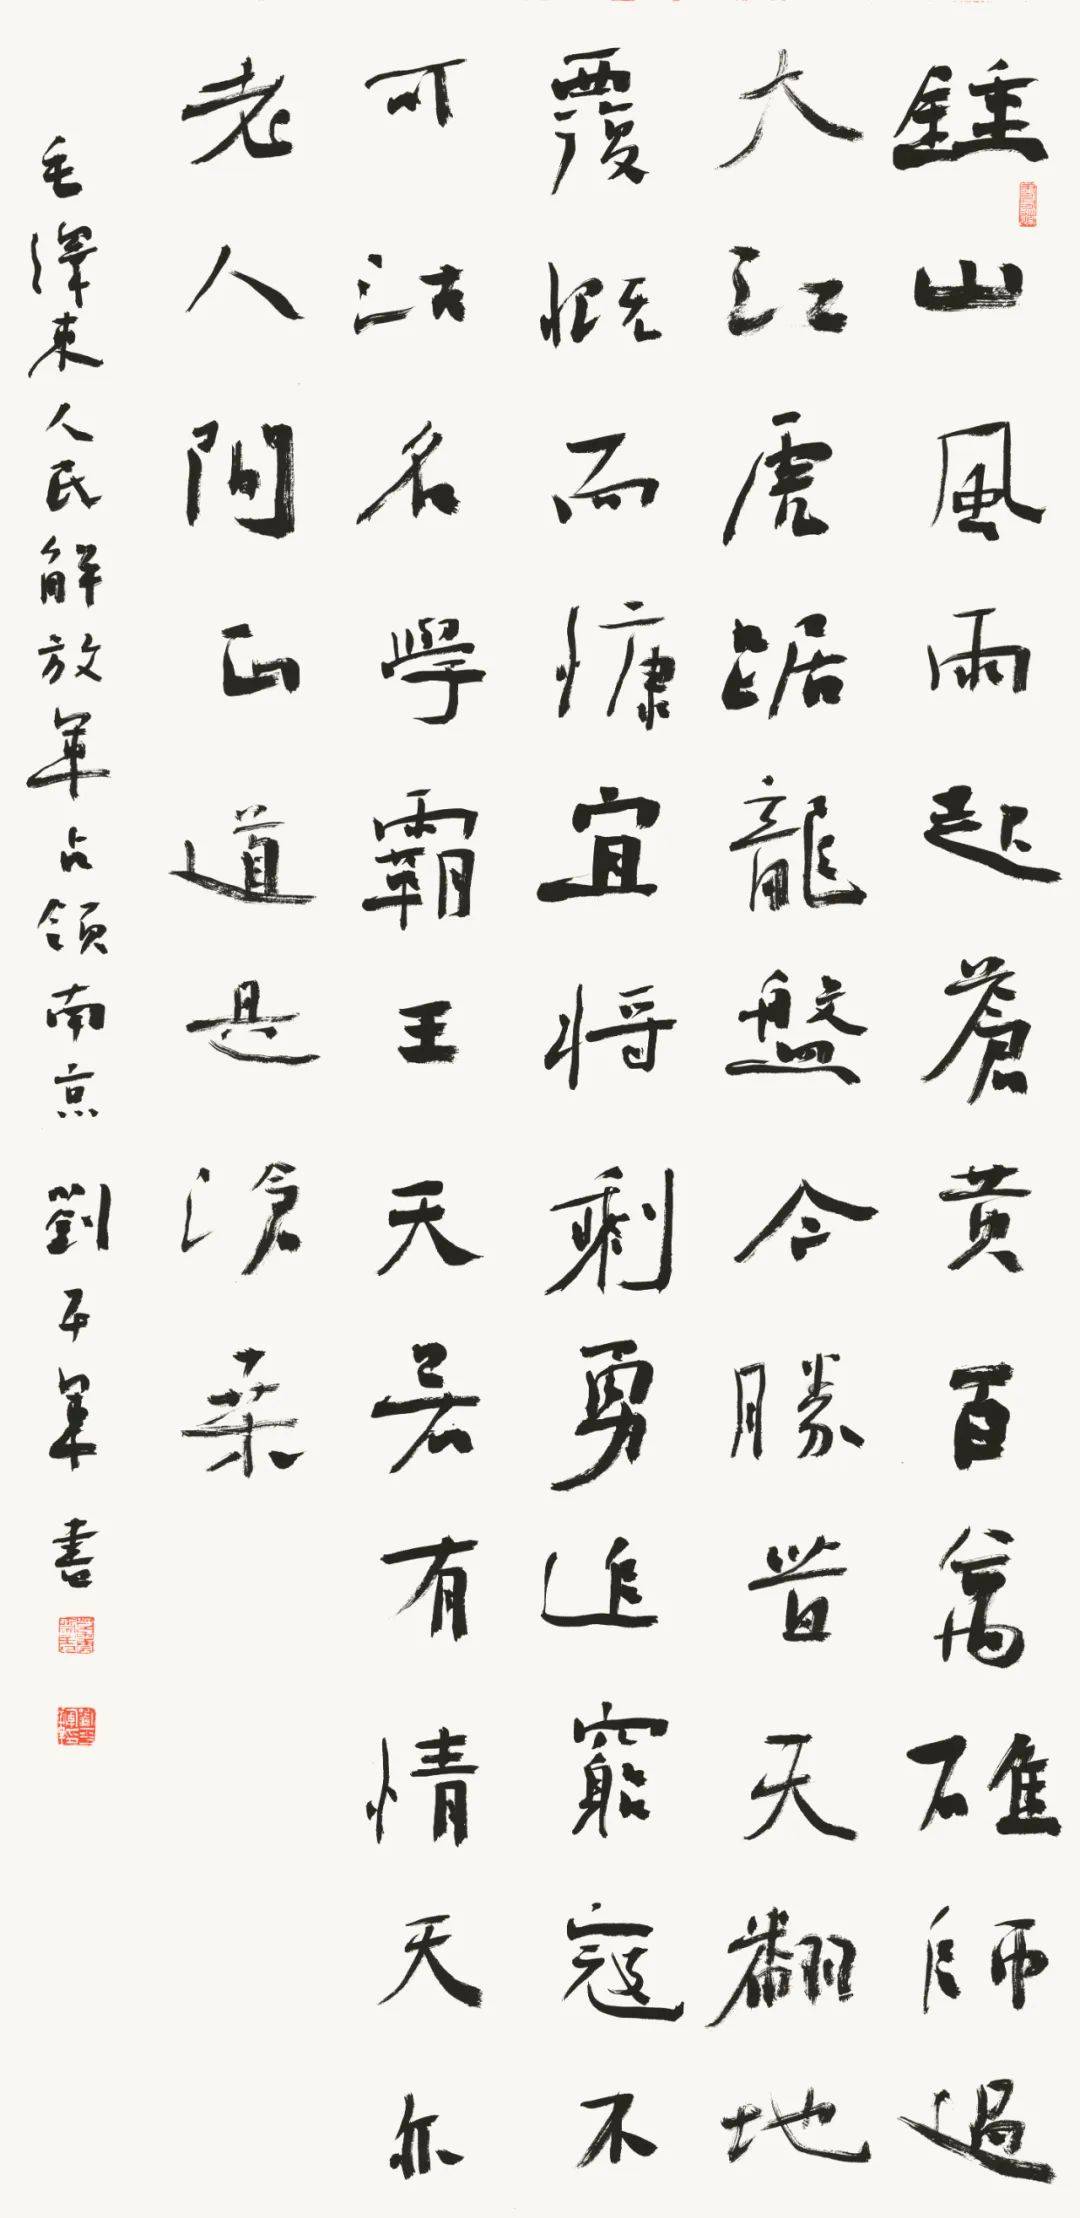 鍾山風雨起蒼黃百萬雄師過
大江虎踞龍盤今勝昔天翻地
覆慨而慷宜将剩勇追窮寇不
可沽名學霸王天若有情天亦
老人間正道是滄桑
毛澤東人民解放軍占領南京 劉 書